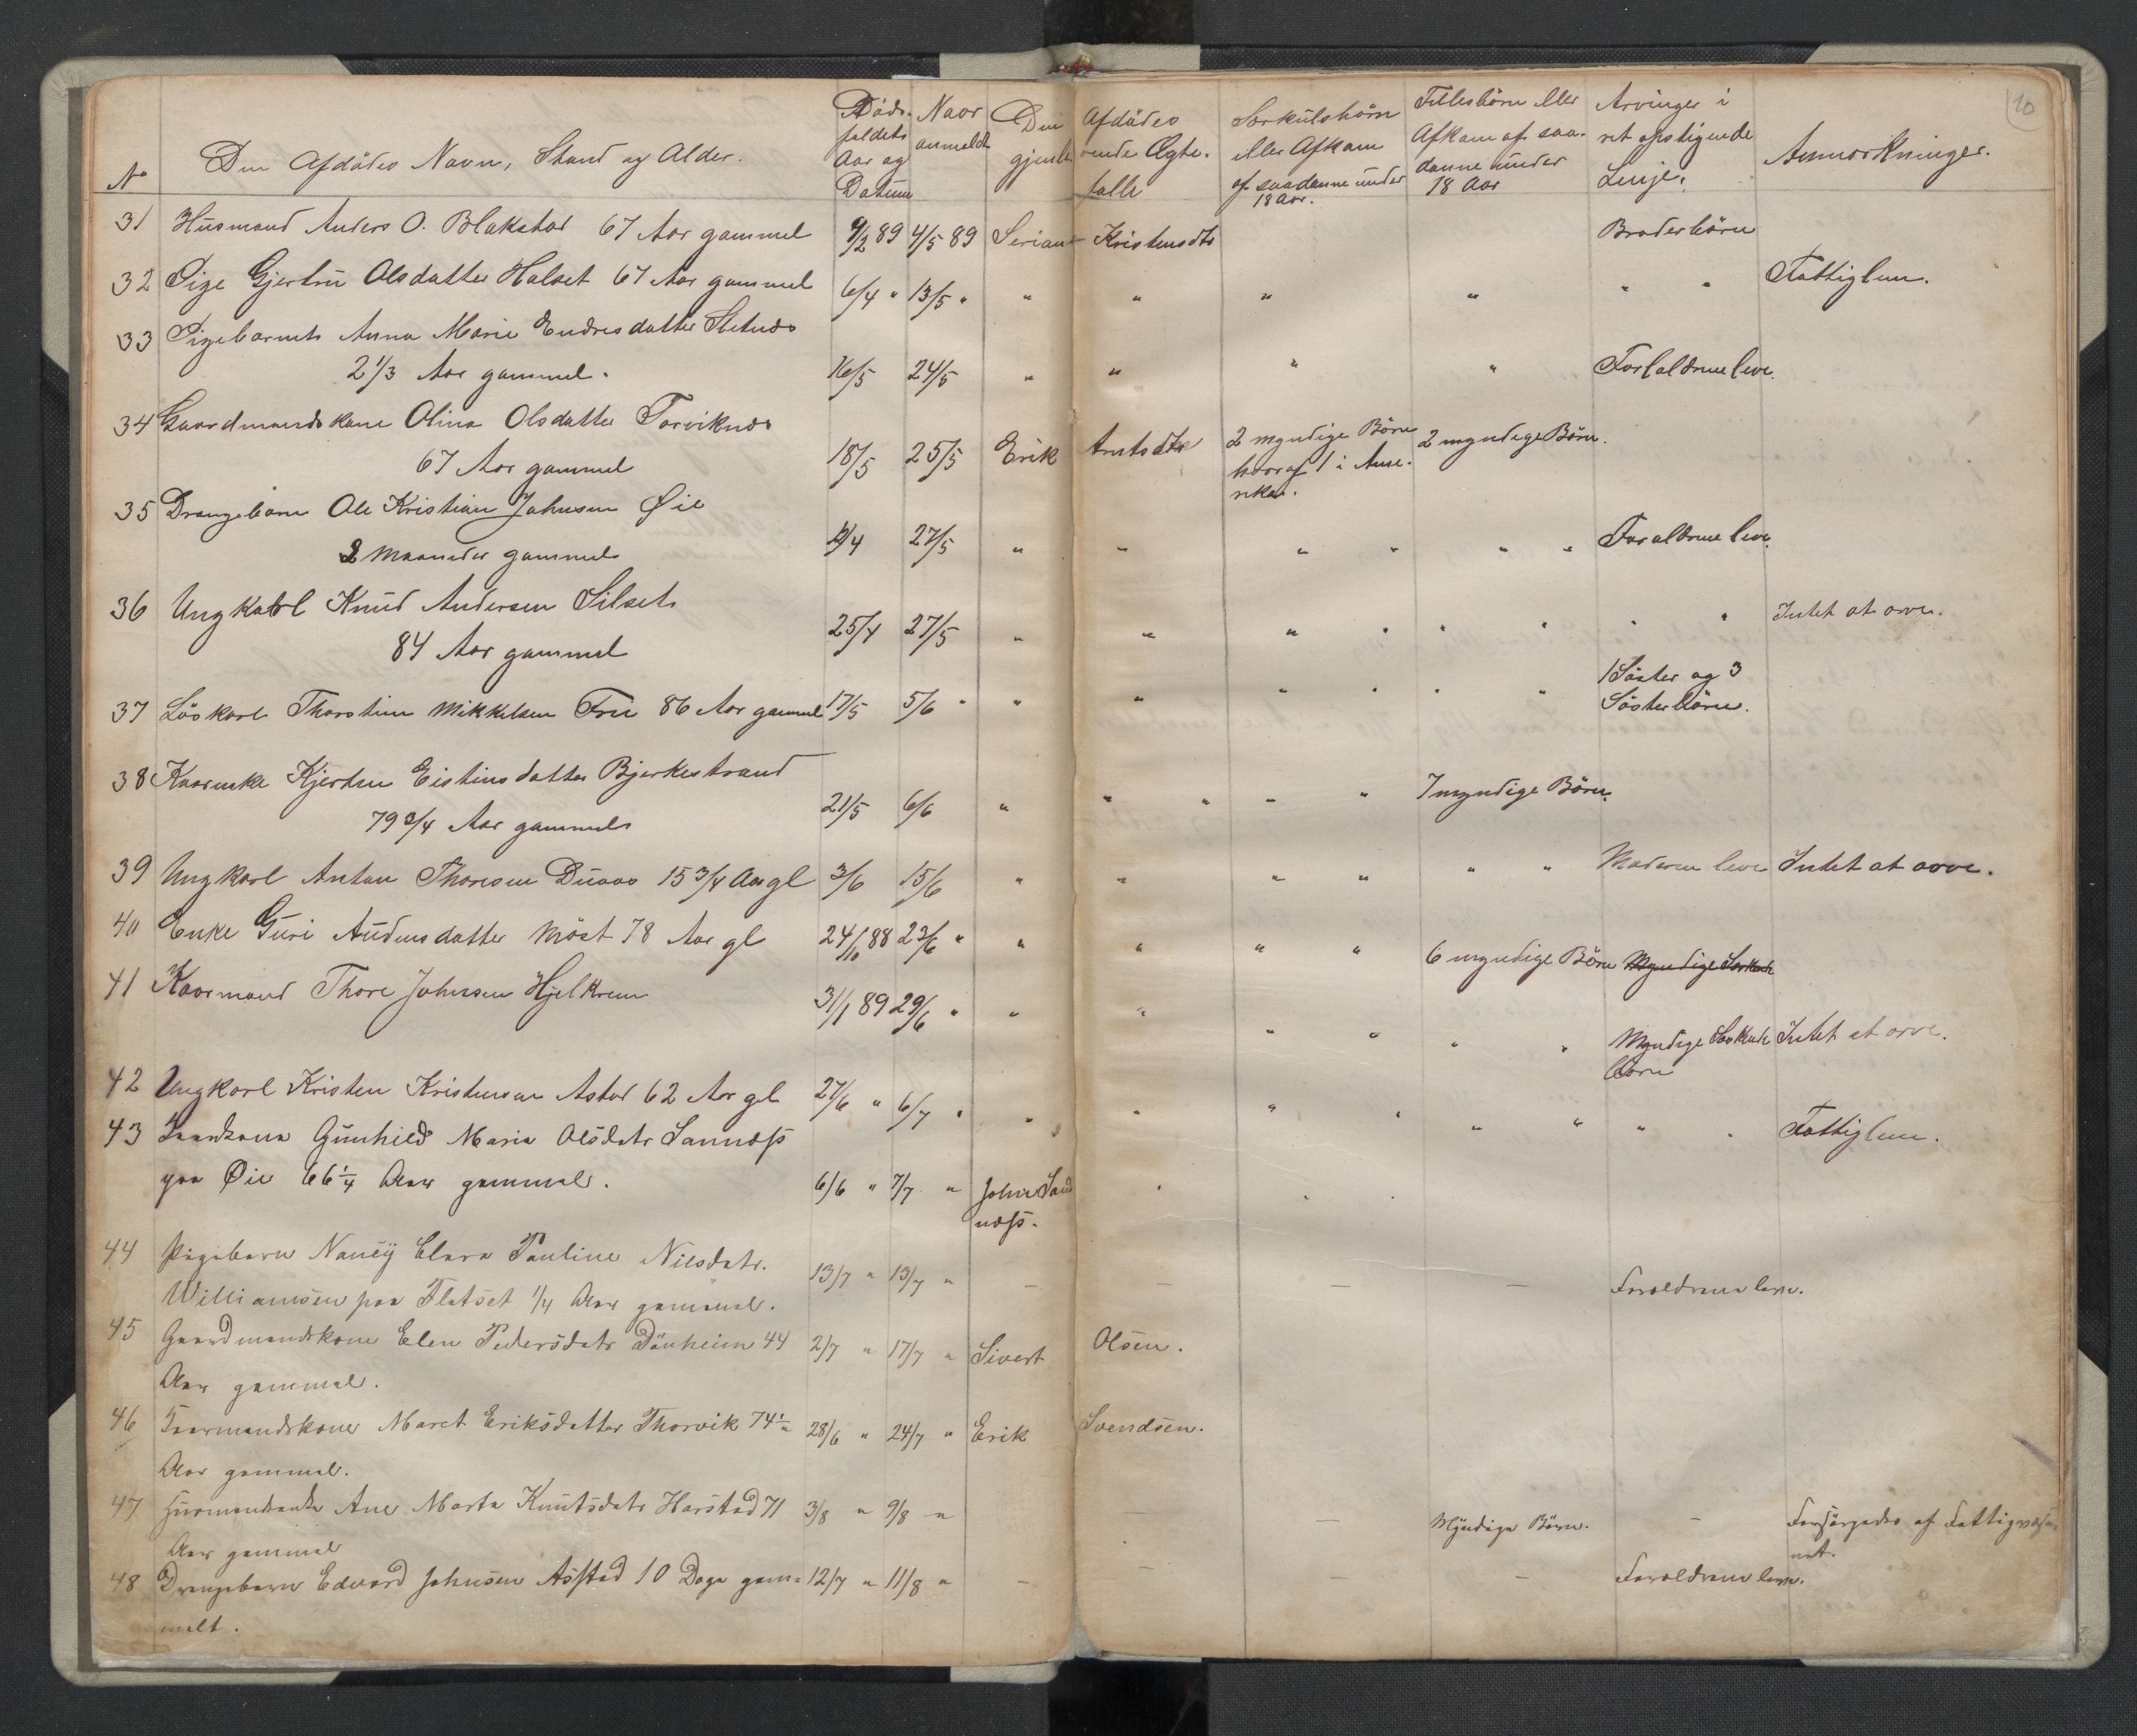 10
No Den Afdödes Navn, Stand og Alder. Döds- faldets Aar og Datum Naar anmeldt Den Afdödes gjenlevende Ægtefælle Særkulsbörn eller Afkom af saadanne under 18 Aar. Fællesbörn eller Afkom af saadanne under 18 Aar Arvinger i ret opstigende Linje. Anmærkninger.
31 Husmand Anders O. Blakstad 67 Aar gammel 9/2 89 4/5 89 Seriane Kristensdtr Broderbörn
32 Pige Gjertru Olsdatter Halset 67 Aar gammel 6/4 " 13/5 " " " " " " " Fattiglem.
33 Pigebarnet Anna Marie Endresdatter
2 1/3 Aar gammel. 16/5 24/5 " " " " Forældrene leve.
34 Gaardmandskone Olina Olsdatter Torviknæs
67 Aar gammel 18/5 25/5 Erik 2 myndige Börn 2 myndige Börn.
hvoraf 1 i Ame-
rika.
35 Drengebarn Ole Kristian Johnsen Øie
2 Maaneder gammel /4 27/5 " " " " " " Forældrene leve.
36 Ungkarl Knud Andersen Silset
84 Aar gammel 25/4 27/5 " " " " " " " " Intet at arve.
37 Löskarl Thorstein Mikkelsen Frei 86 Aar gammel 17/5 5/6 " " " " " " " 1 Söster og 3
Sösterbörn.
38 Kaarenke Kjersten Eistensdatter Bjerkestrand
79 3/4 Aar gammel 21/5 6/6 " " " " " 7 myndige Börn.
39 Ungkarl Anton Thoresen 15 3/4 Aar gl 3/6 15/6 " " " " " " Moderen leve Intet at arve.
40 Enke Guri Audensdatter Möst 78 Aar gl 24/10 88 23/6 " " " " " 6 myndige Börn Myndige
41 Kaarmand Thore Johnsen Hjelkrem 31/1 89 29/6 " " " " " " " Myndige Söskende Intet at arve.
börn
42 Ungkarl Kristen Kristensen Astad 62 Aar gl. 27/6 " 6/7 " " " " " " " " " Fattiglem.
43 Gunhild Maria Olsdatr Sannæss
paa Øie 66 1/4 Aar gammel. 6/6 " 7/7 " John Sand
næss.
44 Pigebarn Nancy Clara Pauline Nilsdatr.
Williamsen paa Flatset 1/4 Aar gammel. 13/7 " 13/7 " — — — — Forældrene leve.
45 Gaardmandskone Elen Pedersdatr Dönheim 44 2/7 " 17/7 " Sivert Olsen.
Aar gammel.
46 Kaarmandskone Maret Eriksdatter Thorvik 74 1/2 28/6 " 24/7 " Erik Svendsen.
Aar gammel.
47 Husmandsenke Ane Marta Knutsdatr Harstad 71 3/8 " 9/8 " — — Myndige Börn. — Forsörgedes af Fattigvæse-
net.
Aar gammel
48 Drengebarn Edvard Johnsen Asstad 10 Dage gam- 12/7 " 11/8 " — — — — Forældrene leve.
melt.